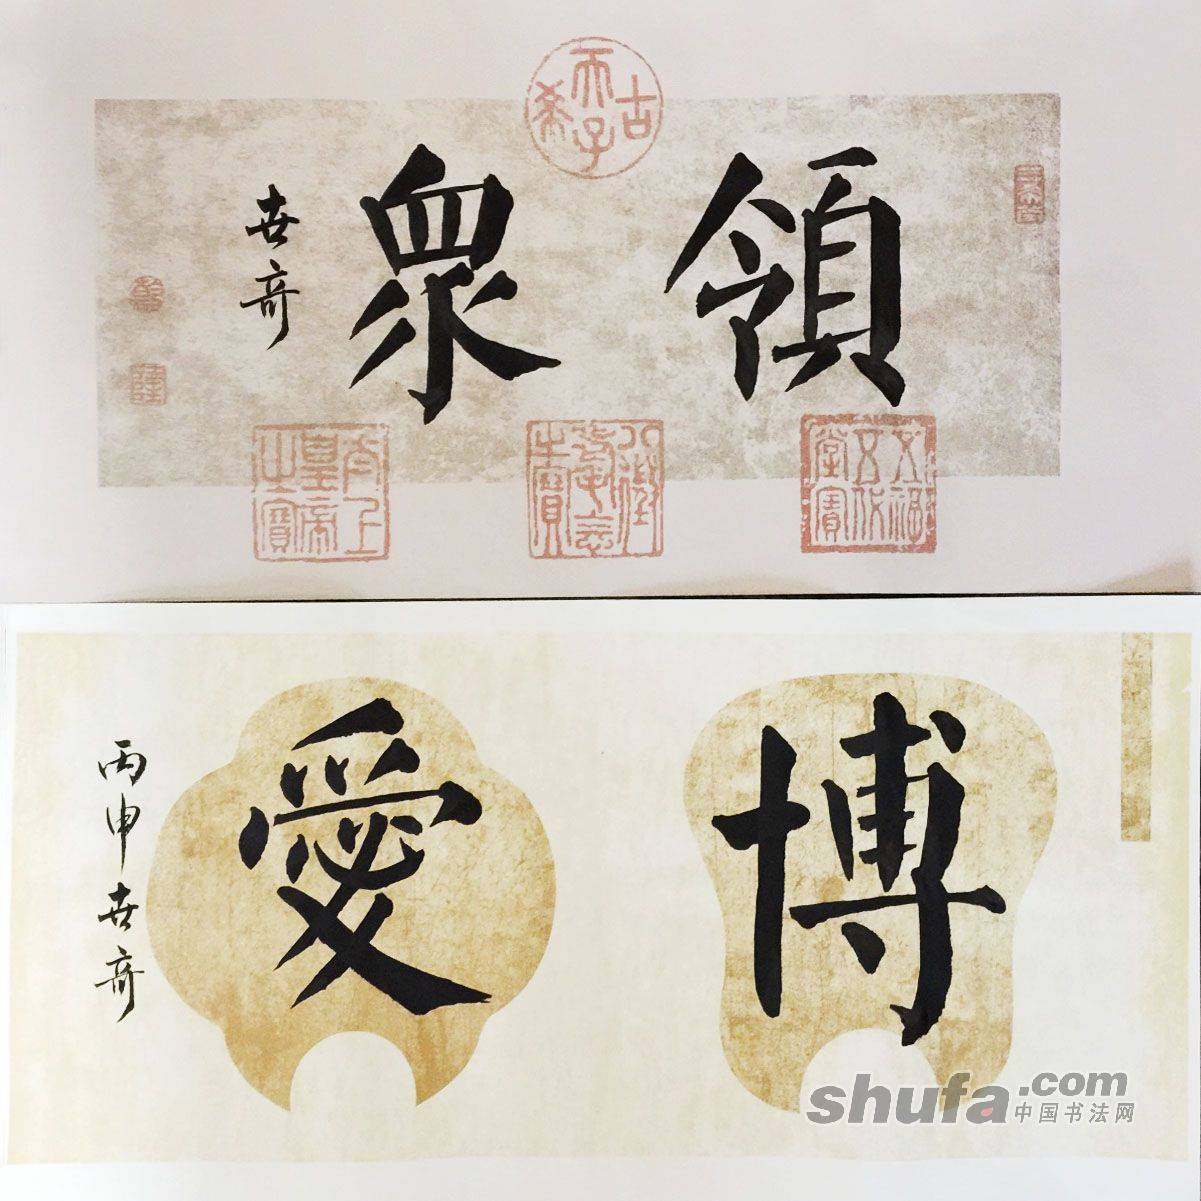 古希天子
領眾
世奇
八徵耄念之寶
五福五代堂寶
太上皇帝之寶
愛博
丙申世奇
shufa.com
中国书法网